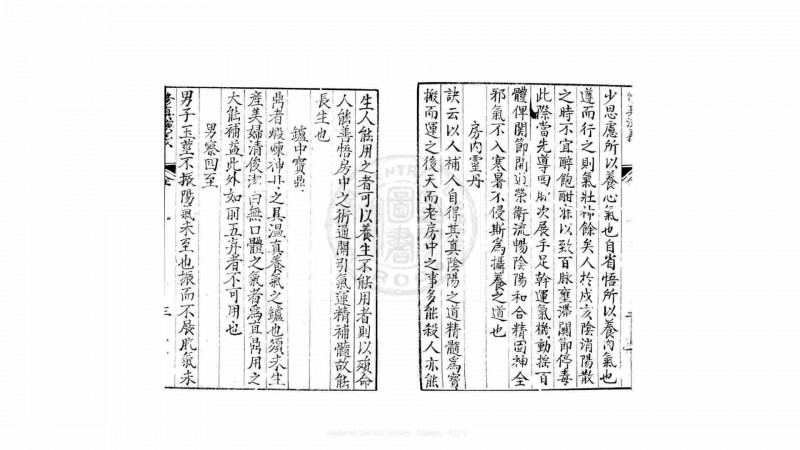 少思慮所以養心氣也自省悟所以養內氣也
遵而行之則氣壯神餘矣人於戌亥陰消陽散
之時不宜醉飽酣淫以致百脉壅滯關節停毒
此際當先導四肢次展手足幹運氣機動搖百
體俾關節開通榮衛流暢陰陽和合精固神全
邪氣不入寒暑不侵斯為攝養之道也
房內靈丹
訣云以人補人自得其真陰陽之道精髓為寶
搬而運之後天而老房中之事多能殺人亦能
生人能用之者可以養生不能用者則以殞命
人能善悟房中之術通關引氣運精補髓故能
長生也
鑪中寶鼎
鼎者煅煉神丹之具溫真養氣之鑪也須未生
產美婦清俊潔白無口體之氣者為真鼎用之
大能補益此外如前五弃者不可用也
男察四至
男子玉莖不振陽氣未至也振而不展肌氣未
三